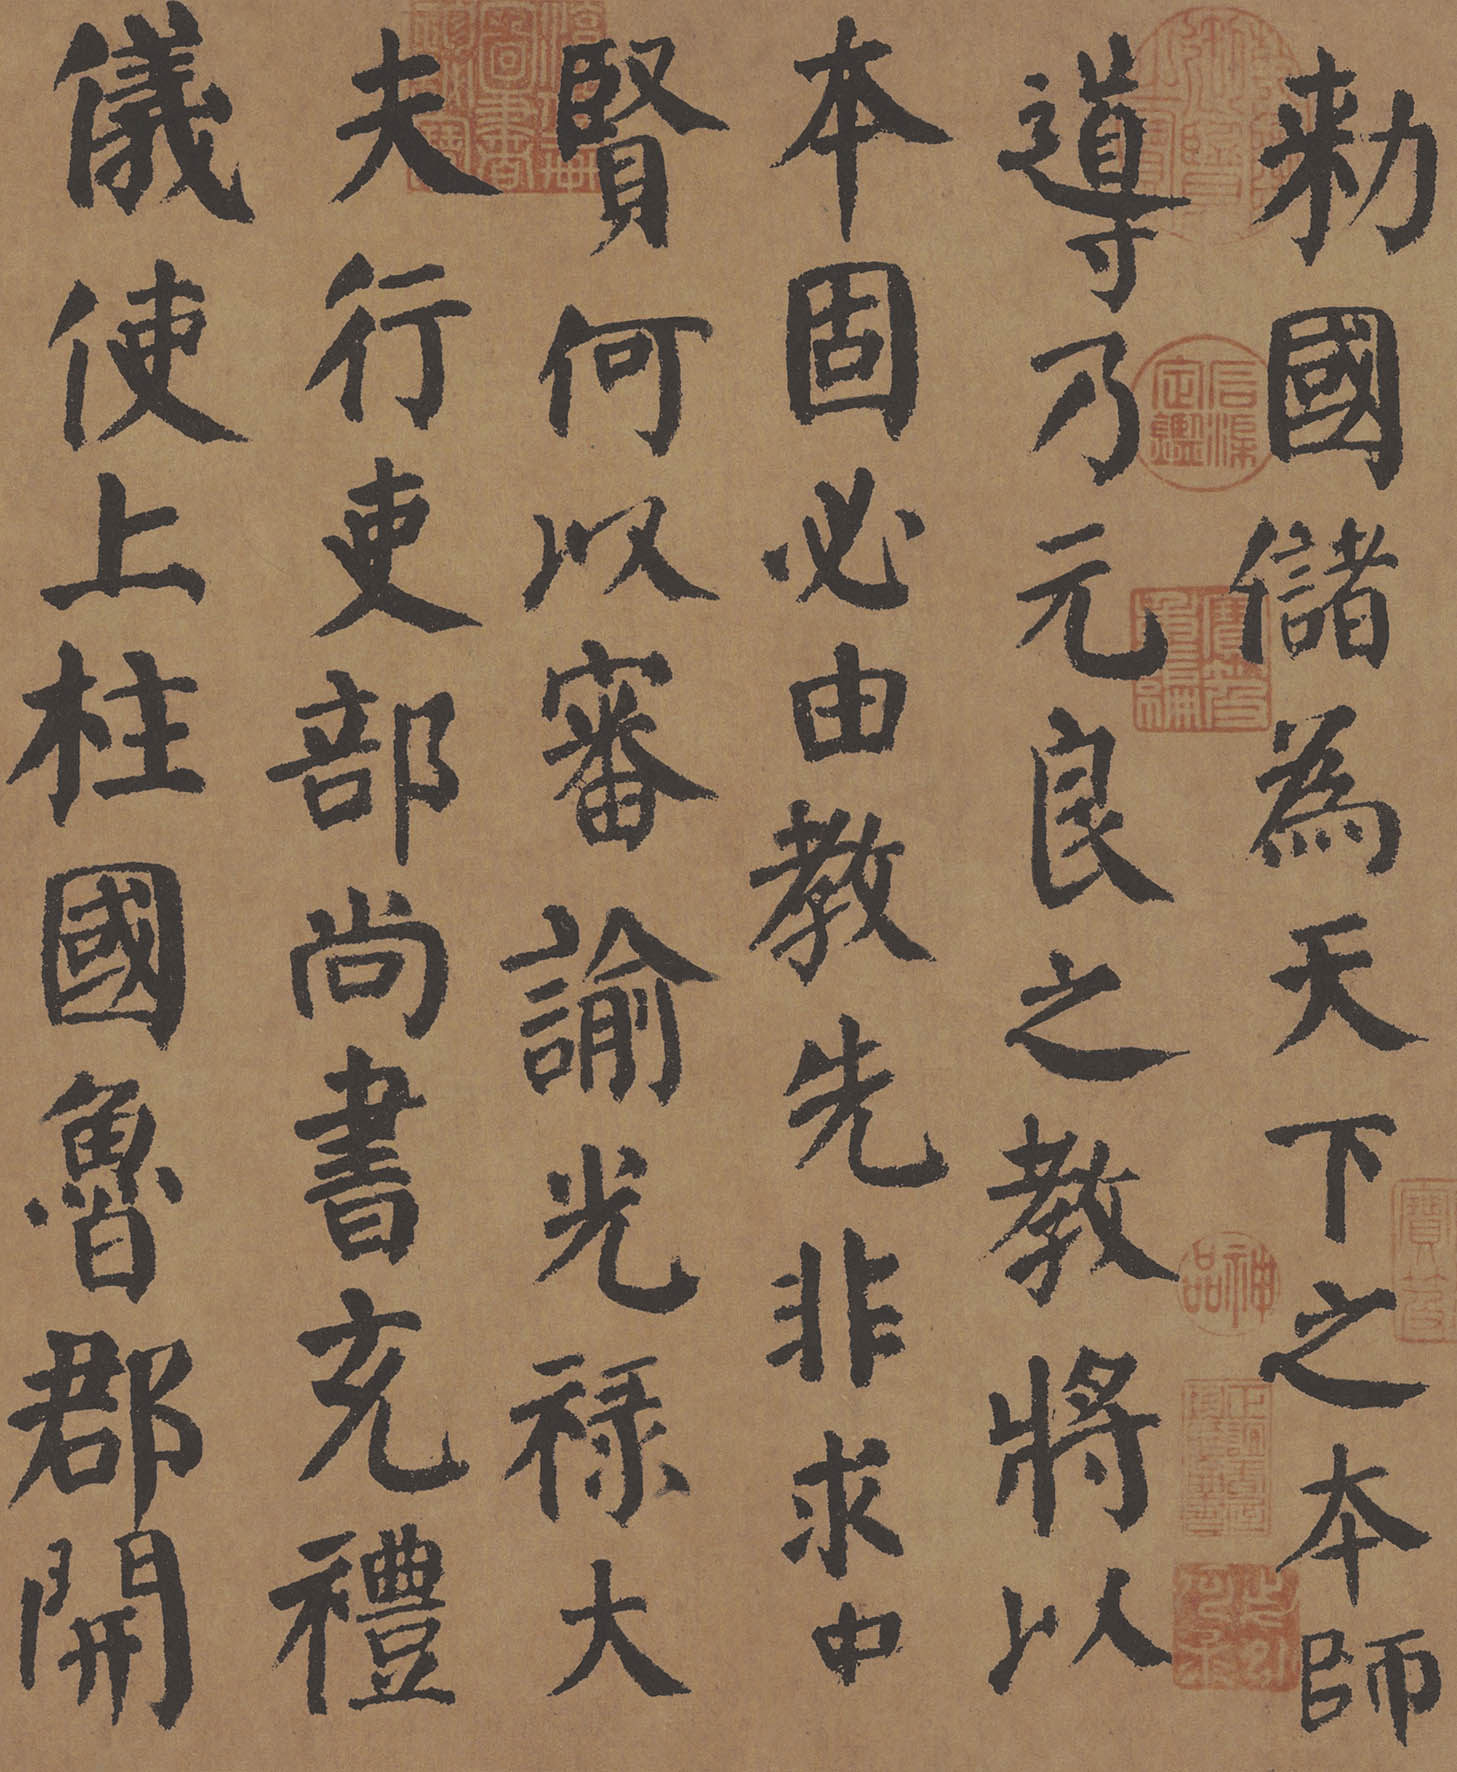 勅國儲為天下之本師
導乃元良之教將以
本固必由教先非求中
賢何以審諭光禄大
夫行吏部尚書充禮
儀使上柱國魯郡開
神品